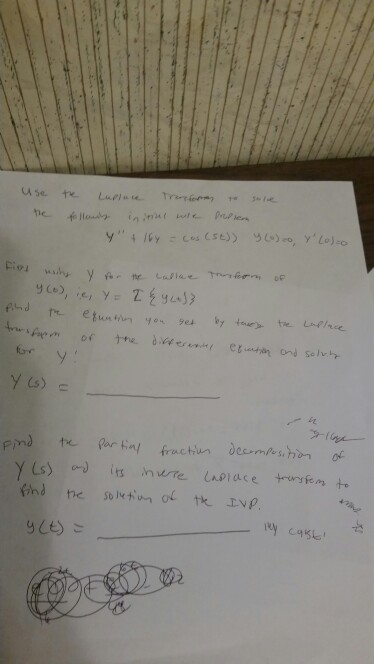 Use the Laplace Transform to solve
the following initial value problem
y'' + 16y = cos(5t)) y(0)=0, y'(0)=0
First using Y for the Laplace Transform of
y(t), i.e, Y = L{y(t)}
find the equation you get by taking the Laplace
transform of the differential equation and solving
for Y!
Y(s) =
Find the partial fraction decomposition of
Y(s) and its inverse Laplace transform to
find the solution of the IVP.
y(t) =